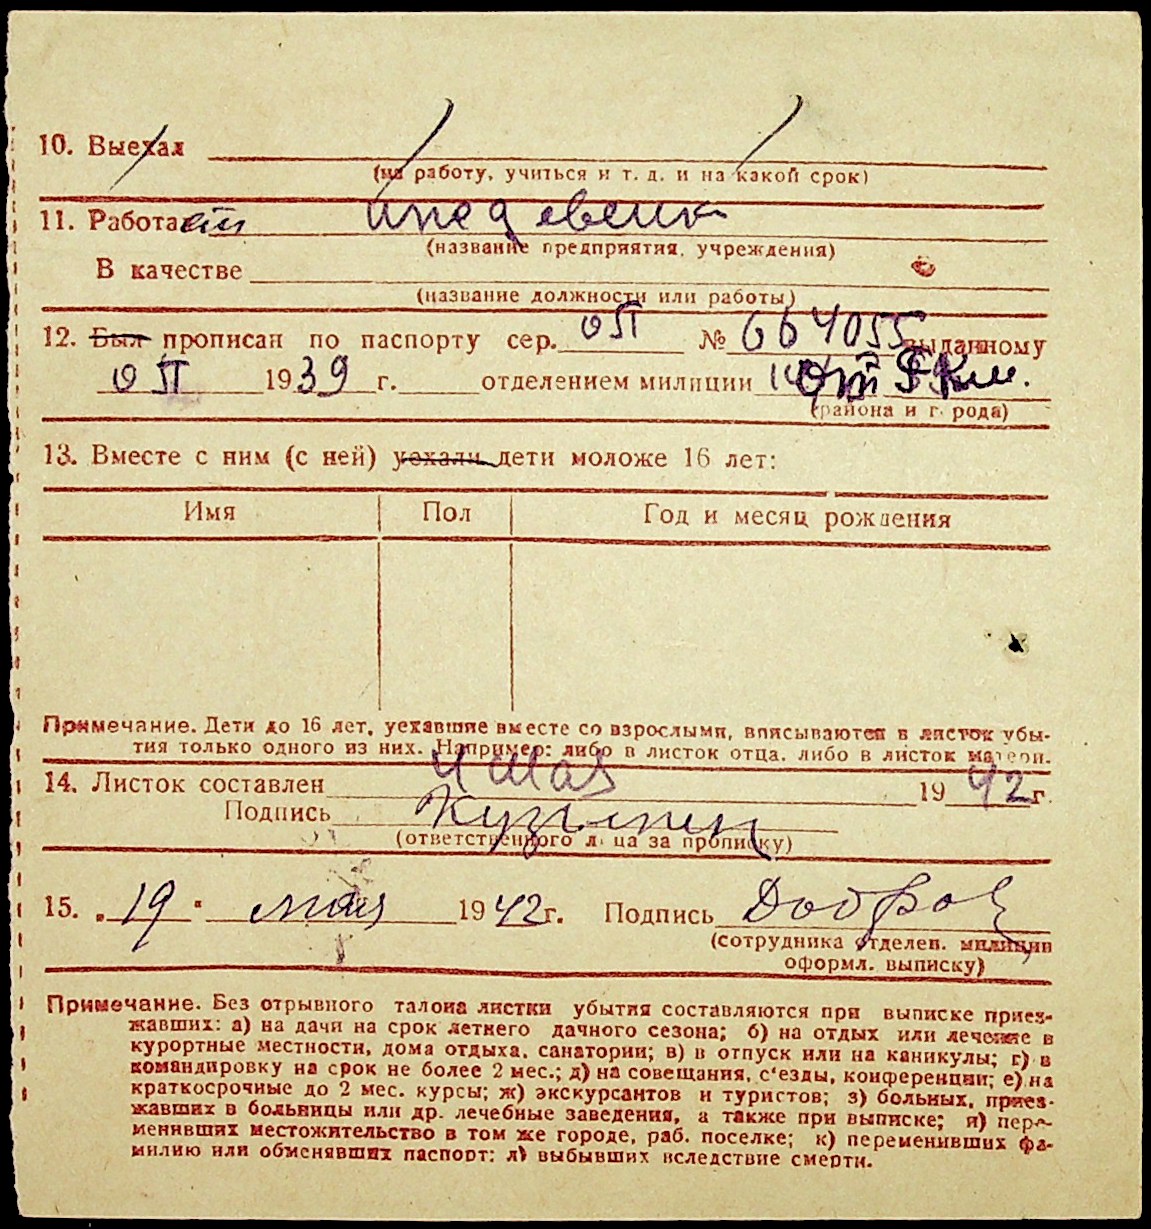 10. Выехал
(на работу, учиться и т. д. и на какой срок)
11. Работает иждевенка
(название предприятия, учреждения)
В качестве
(название должности или работы)
12. Был прописан по паспорту сер. оП № 664055 выданному
оП 1939 г. отделением милиции
(района и города)
13. Вместе с ним (с ней) уехали дети моложе 16 лет:
Имя Пол Год и месяц рождения
Примечание. Дети до 16 лет, уехавшие вместе со взрослыми, вписываются в листок убы-
тия только одного из них. Например: либо в листок отца, либо в листок матери.
14. Листок составлен 4 мая 1942 г.
Подпись
(ответственного лица за прописку)
15. „19" мая 1942 г. Подпись
(сотрудника отделен. милиции
оформл. выписку)
Примечание. Без отрывного талона листки убытия составляются при выписке приез-
жавших: а) на дачи на срок летнего дачного сезона; б) на отдых или лечение в
курортные местности, дома отдыха, санатории; в) в отпуск или на каникулы; г) в
командировку на срок не более 2 мес.; д) на совещания, с'езды, конференции; е) на
краткосрочные до 2 мес. курсы; ж) экскурсантов и туристов; з) больных, приез-
жавших в больницы или др. лечебные заведения, а также при выписке; и) пере-
менивших местожительство в том же городе, раб. поселке; к) переменивших фа-
милию или обменявших паспорт; л) выбывших вследствие смерти.